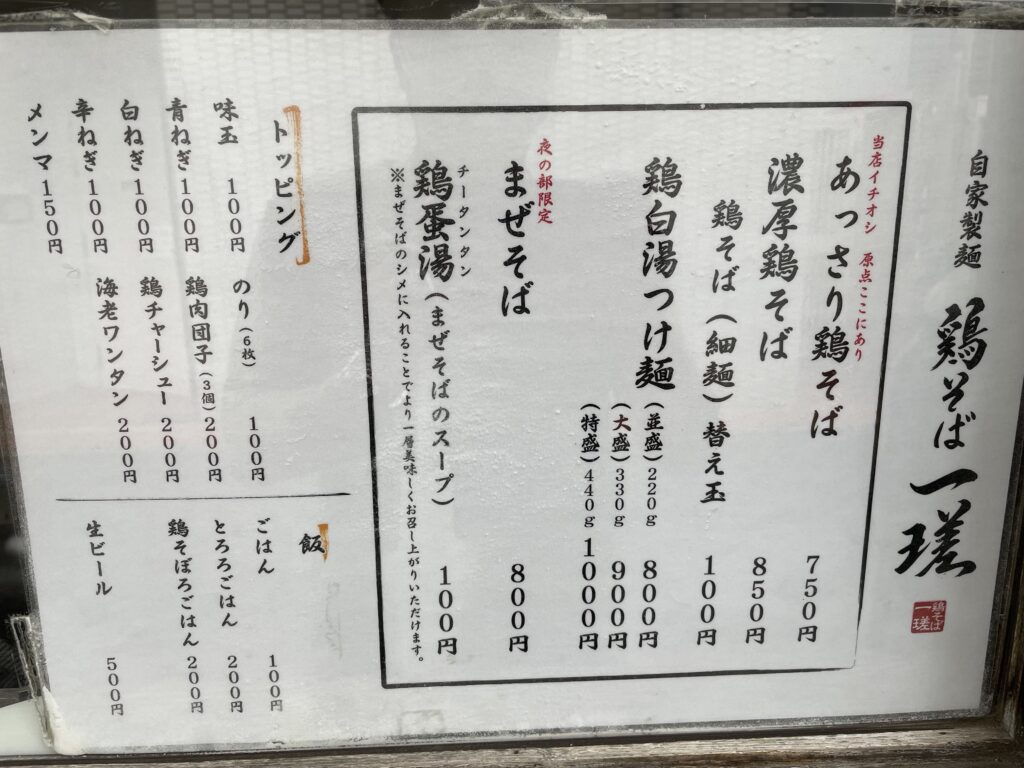 自家製麺 鶏そば 一瑳
鶏そば
一瑳
当店イチオシ 原点ここにあり
あっさり鶏そば 750円
濃厚鶏そば 850円
鶏そば(細麺)替え玉 100円
鶏白湯つけ麺 (並盛)220g 800円
(大盛)330g 900円
(特盛)440g 1000円
夜の部限定
まぜそば 800円
チータンタン
鶏蛋湯(まぜそばのスープ) 100円
※まぜそばのシメに入れることでより一層美味しくお召し上がりいただけます。
トッピング
味玉 100円
青ねぎ 100円
白ねぎ 100円
辛ねぎ 100円
メンマ 150円
のり(6枚) 100円
鶏肉団子(3個) 200円
鶏チャーシュー 200円
海老ワンタン 200円
飯
ごはん 100円
とろろごはん 200円
鶏そぼろごはん 200円
生ビール 500円